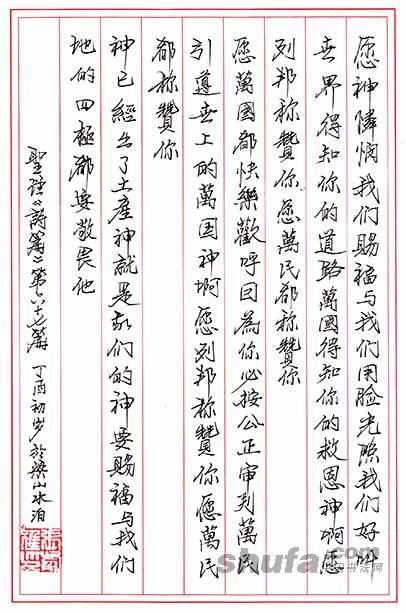 愿神憐悯我们賜福与我们用脸光照我们好叫
世界得知你的道路萬國得知你的救恩神啊愿
列邦称贊你愿萬民都称贊你
愿萬國都快樂歡呼因為你必按公正审判萬民
引導世上的萬国神啊愿列邦称贊你愿萬民
都称贊你
神已經出了土產神就是我们的神要賜福与我们
地的四極都要敬畏他
聖经《詩篇》第六十七篇 丁酉初岁於梁山水泊
shufa.com
书法网